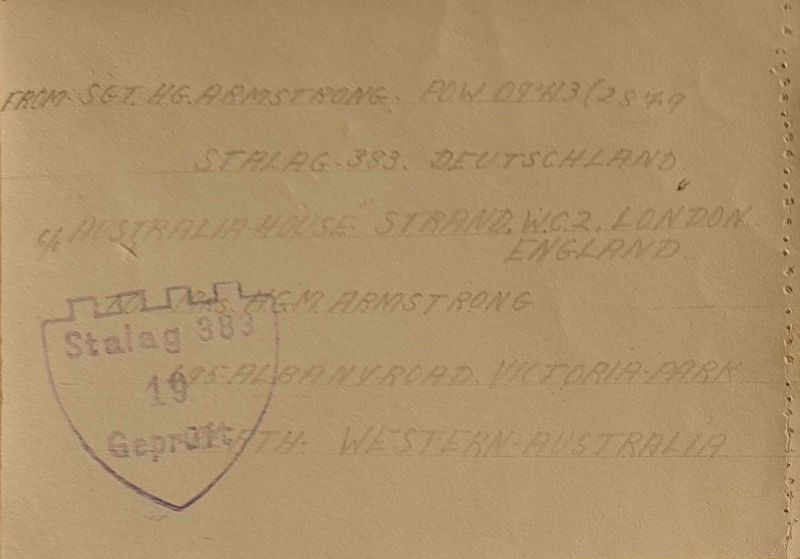 FROM. SGT. H.G. ARMSTRONG. POW 09413 (2849
STALAG. 383. DEUTSCHLAND.
c/o AUSTRALIA HOUSE" STRAND. W.C.2. LONDON
ENGLAND
TO MRS. H.G.M. ARMSTRONG
Stalag 383
695 ALBANY ROAD. VICTORIA-PARK
19
PERTH. WESTERN-AUSTRALIA
Geprüft